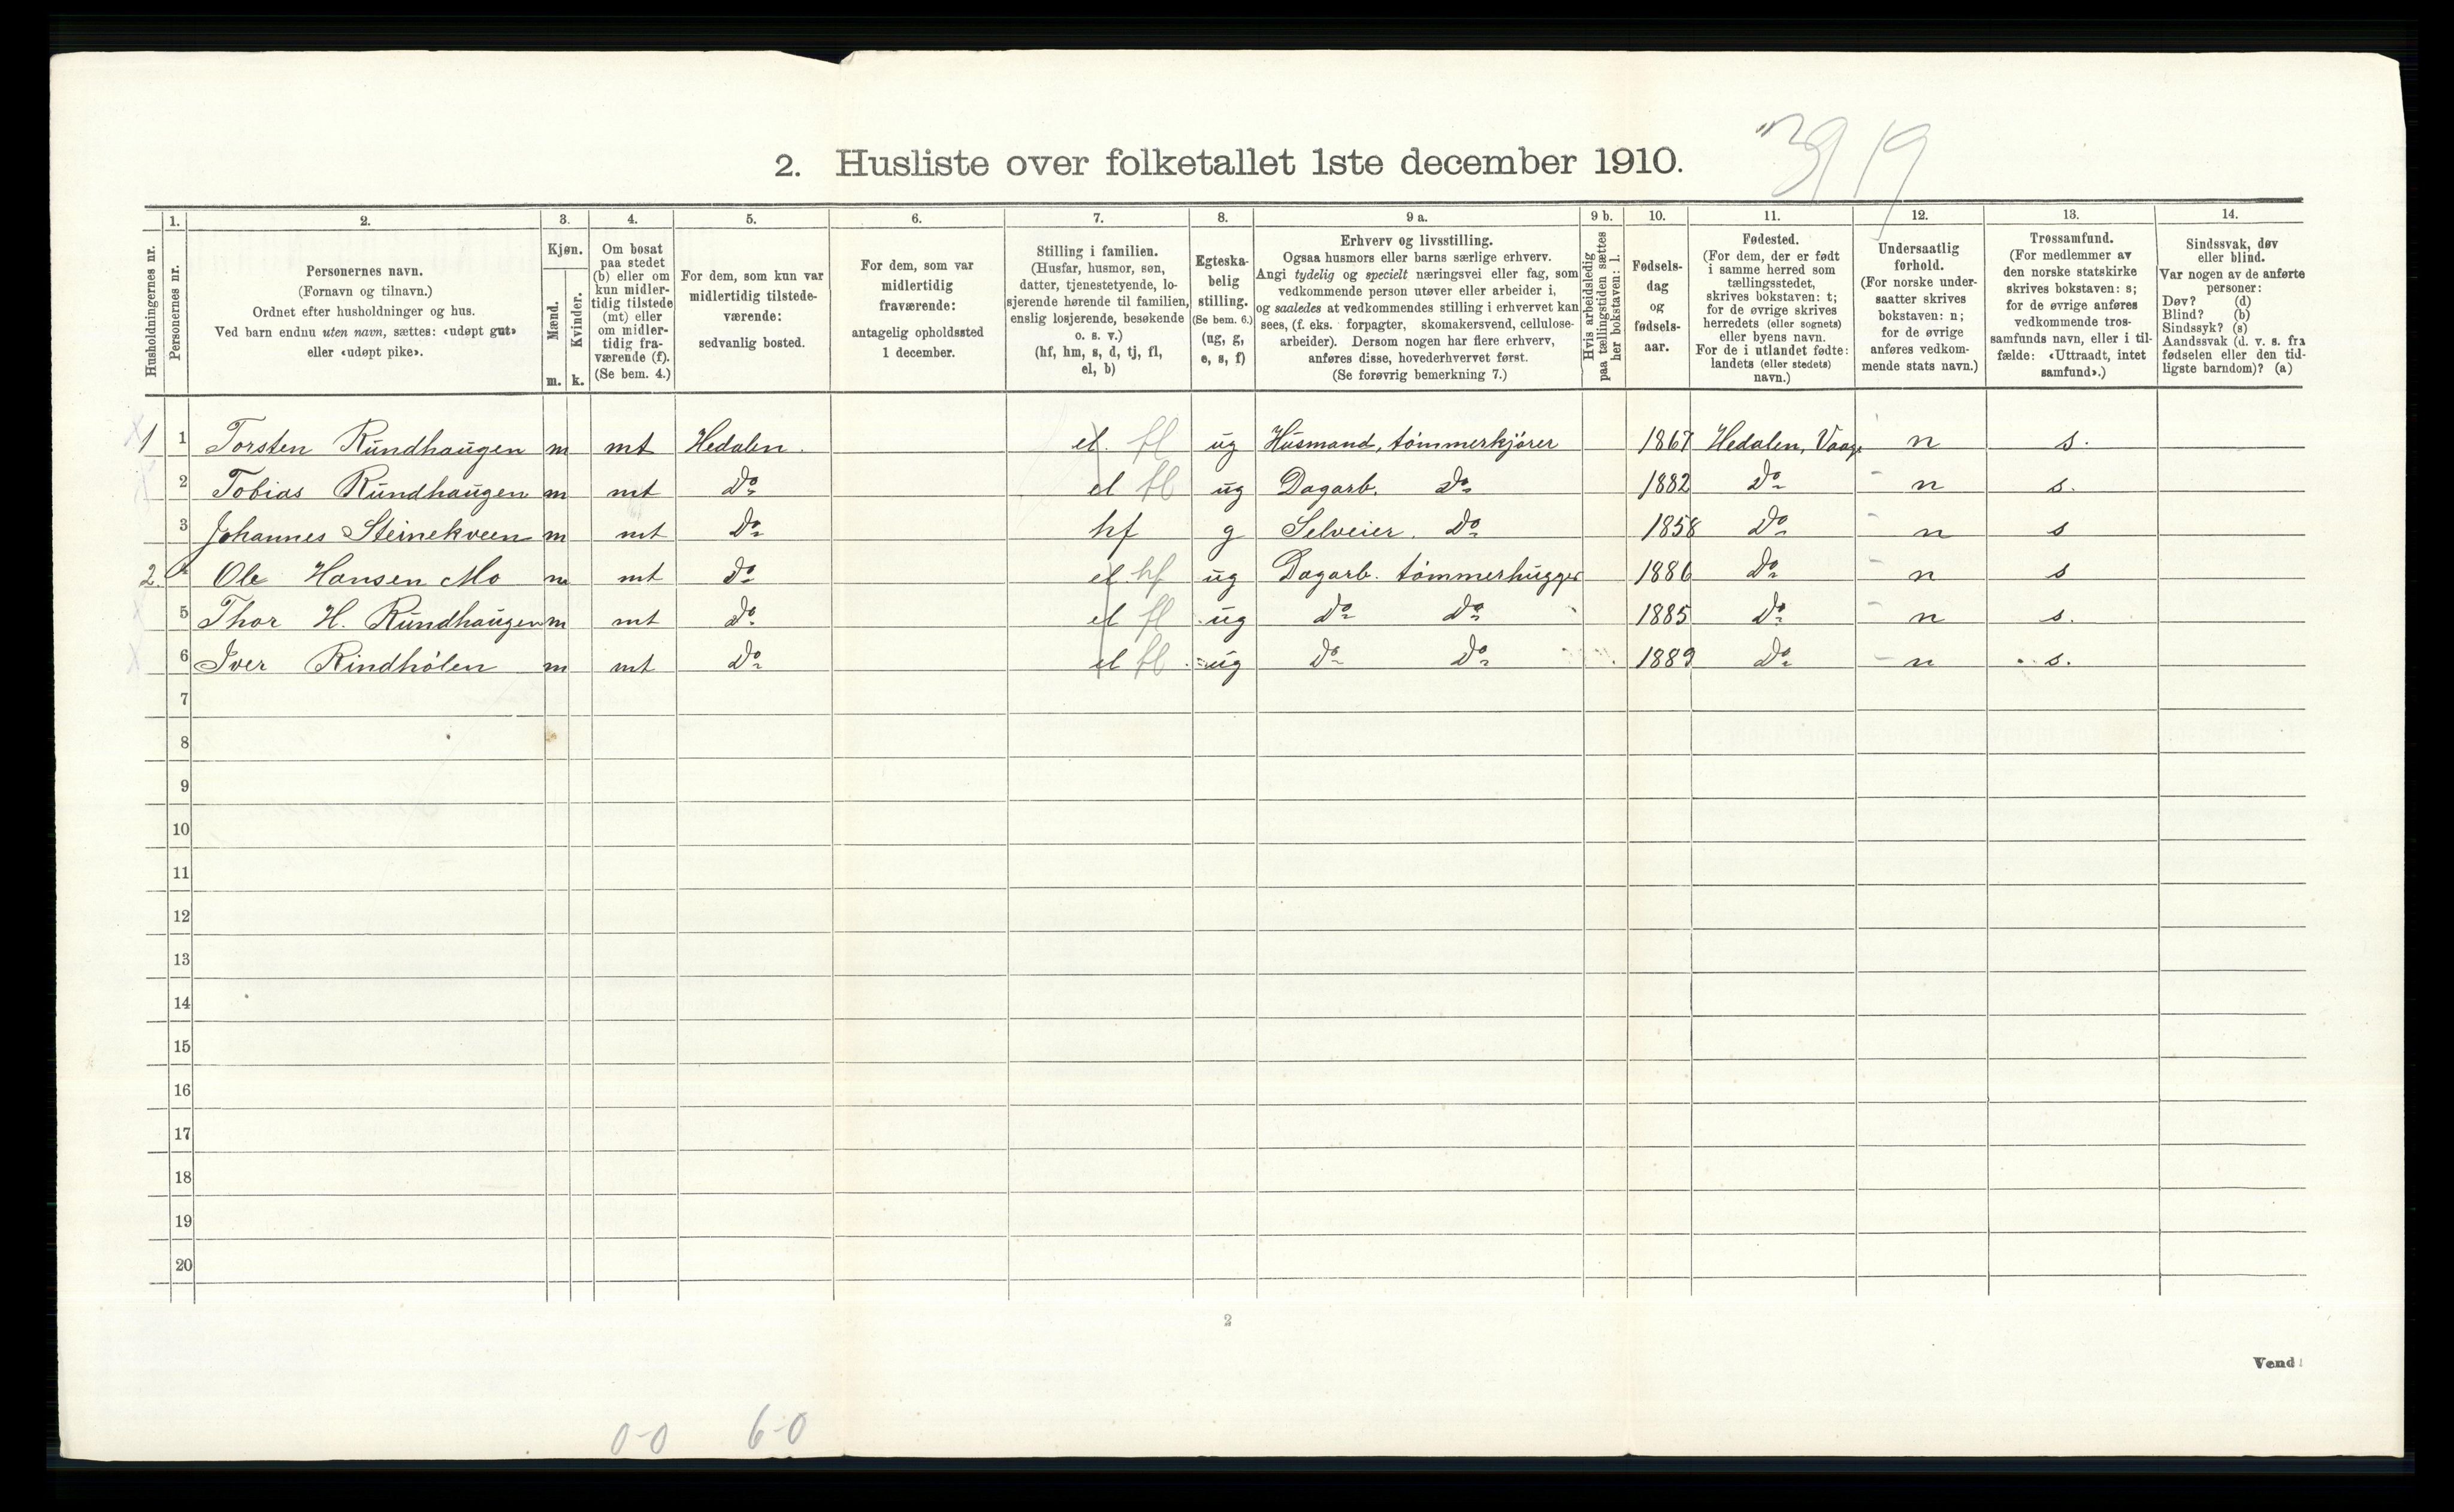 39 19
2. Husliste over folketallet 1ste december 1910.
Husholdningernes nr.
1.
Personernes nr.
2.
Personernes navn.
(Fornavn og tilnavn.)
Ordnet efter husholdninger og hus.
Ved barn endnu uten navn, sættes: «udøpt gut»
eller «udøpt pike».
3.
Kjøn.
Mænd.
Kvinder.
m. k.
4.
Om bosat
paa stedet
(b) eller om
kun midler-
tidig tilstede
(mt) eller
om midler-
tidig fra-
værende (f).
(Se bem. 4.)
5.
For dem, som kun var
midlertidig tilstede-
værende:
sedvanlig bosted.
6.
For dem, som var
midlertidig
fraværende:
antagelig opholdssted
1 december.
7.
Stilling i familien.
(Husfar, husmor, søn,
datter, tjenestetyende, lo-
sjerende hørende til familien,
enslig losjerende, besøkende
o. s. v.)
(hf, hm, s, d, tj, fl,
el, b)
8.
Egteska-
belig
stilling.
(Se bem. 6.)
(ug, g,
e, s, f)
9 a.
Erhverv og livsstilling.
Ogsaa husmors eller barns særlige erhverv.
Angi tydelig og specielt næringsvei eller fag, som
vedkommende person utøver eller arbeider i,
og saaledes at vedkommendes stilling i erhvervet kan
sees, (f. eks. forpagter, skomakersvend, cellulose-
arbeider). Dersom nogen har flere erhverv,
anføres disse, hovederhvervet først.
(Se forøvrig bemerkning 7.)
9 b.
Hvis arbeidsledig
paa tællingstiden sættes
her bokstaven: l.
10.
Fødsels-
dag
og
fødsels-
aar.
11.
Fødested.
(For dem, der er født
i samme herred som
tællingsstedet,
skrives bokstaven: t;
for de øvrige skrives
herredets (eller sognets)
eller byens navn.
For de i utlandet fødte:
landets (eller stedets)
navn.)
12.
Undersaatlig
forhold.
(For norske under-
saatter skrives
bokstaven: n;
for de øvrige
anføres vedkom-
mende stats navn.)
13.
Trossamfund.
(For medlemmer av
den norske statskirke
skrives bokstaven: s;
for de øvrige anføres
vedkommende tros-
samfunds navn, eller i til-
fælde: «Uttraadt, intet
samfund».)
14.
Sindssvak, døv
eller blind.
Var nogen av de anførte
personer:
Døv? (d)
Blind? (b)
Sindssyk? (s)
Aandssvak (d. v. s. fra
fødselen eller den tid-
ligste barndom)? (a)
1 1 Torsten Rundhaugen m mt Hedalen. el. fl ug Husmand, tømmerkjører 1867 Hedalen, Vaage n s.
2 Tobias Rundhaugen m mt Do el fl ug Dagarb. Do 1882 Do n s.
3 Johannes Steinekveen m mt Do hf g Selveier. Do 1858 Do n s
2. 4 Ole Hansen Mo m mt Do el hf ug Dagarb. tømmerhugger 1886 Do n s
5 Thor H. Rundhaugen m mt Do el fl ug Do Do 1885 Do n s.
6 Iver Rindhølen m mt Do el fl ug Do Do 1889 Do n s.
7
8
9
10
11
12
13
14
15
16
17
18
19
20
2
Vend!
0-0 6-0